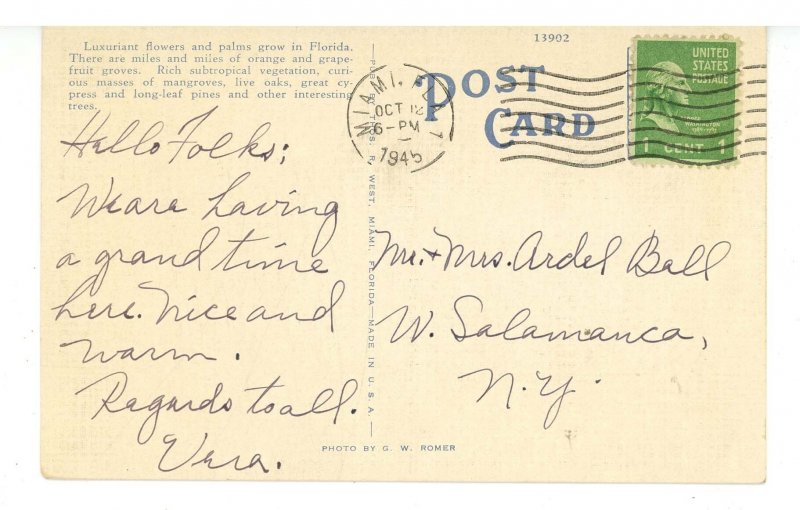 Luxuriant flowers and palms grow in Florida.
There are miles and miles of orange and grape-
fruit groves. Rich subtropical vegetation, curi-
ous masses of mangroves, live oaks, great cy-
press and long-leaf pines and other interesting
trees.
Hello Folks;
We are having
a grand time
here. Nice and
warm.
Regards to all.
Vera.
PUB. BY THOS. R. WEST, MIAMI, FLORIDA—MADE IN U. S. A.
PHOTO BY G. W. ROMER
13902
POST
CARD
MIAMI, FLA. 1
OCT 12
6-PM
1945
UNITED
STATES
POSTAGE
WASHINGTON
1 CENT 1
Mr. + Mrs. Ardel Ball
W. Salamanca,
N.Y.